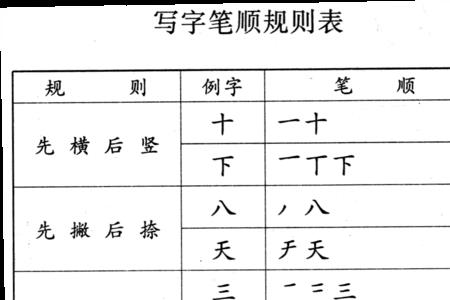 写字笔顺规则表
规 则 例字 笔 顺
先横后竖 十 一十
下 一丅下
先撇后捺 八 丿八
天 チ天
三 一二三